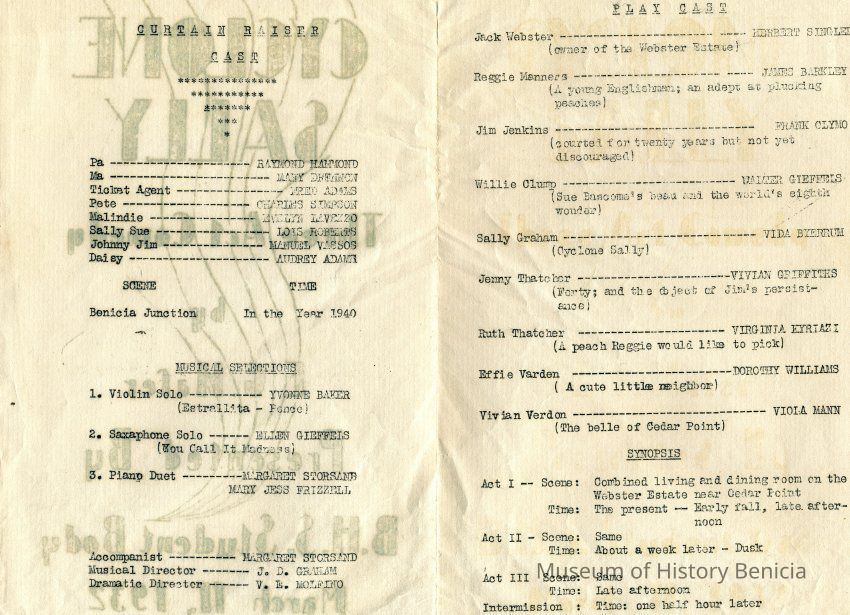 CURTAIN RAISER
CAST
***************
***********
*******
***
*
Pa --------------------- RAYMOND HAMMOND
Ma --------------------- MARY
Ticket Agent ------------ FRED ADAMS
Pete -------------------- CHARLES SIMPSON
Malindie ---------------- LAVEZZO
Sally Sue --------------- LOIS ROBERTS
Johnny Jim ------------- MANUEL VASSOS
Daisy --------------------- AUDREY ADAMS
SCENE TIME
Benicia Junction In the Year 1940
MUSICAL SELECTIONS
1. Violin Solo ----------- YVONNE BAKER
(Estrallita - Ponce)
2. Saxaphone Solo ------ ELLEN GIEFFELS
(You Call It Madness)
3. Piano Duet --------MARGARET STORSAND
MARY JESS FRIZZELL
Accompanist ---------- MARGARET STORSAND
Musical Director ------- J. D. GRAHAM
Dramatic Director ------ V. E. MOLFINO
PLAY CAST
Jack Webster ----------------------- ---- HERBERT SINGLE
(owner of the Webster Estate)
Reggie Manners ----------------------- ---- JAMES BARKLEY
(A young Englishman; an adept at plucking
peaches)
Jim Jenkins ------------------------------ FRANK CLYMO
(courted for twenty years but not yet
discouraged)
Willie Clump -------------------------- WALTER GIEFFELS
(Sue Bascome's beau and the world's eighth
wonder)
Sally Graham ---------------------------- VIDA BYERRUM
(Cyclone Sally)
Jenny Thatcher -----------------------VIVIAN GRIFFITHS
(Forty; and the object of Jim's persist-
ance)
Ruth Thatcher ---------------------- VIRGINIA KYRIAZI
(A peach Reggie would like to pick)
Effie Varden ------------------------DOROTHY WILLIAMS
( A cute little neighbor)
Vivian Verdon ----------------------------- VIOLA MANN
(The belle of Cedar Point)
SYNOPSIS
Act I -- Scene: Combined living and dining room on the
Webster Estate near Cedar Point
Time: The present -- Early fall, late after-
noon
Act II - Scene: Same
Time: About a week later - Dusk
Act III Scene: Same
Time: Late afternoon
Intermission : Time: one half hour later
Museum of History Benicia